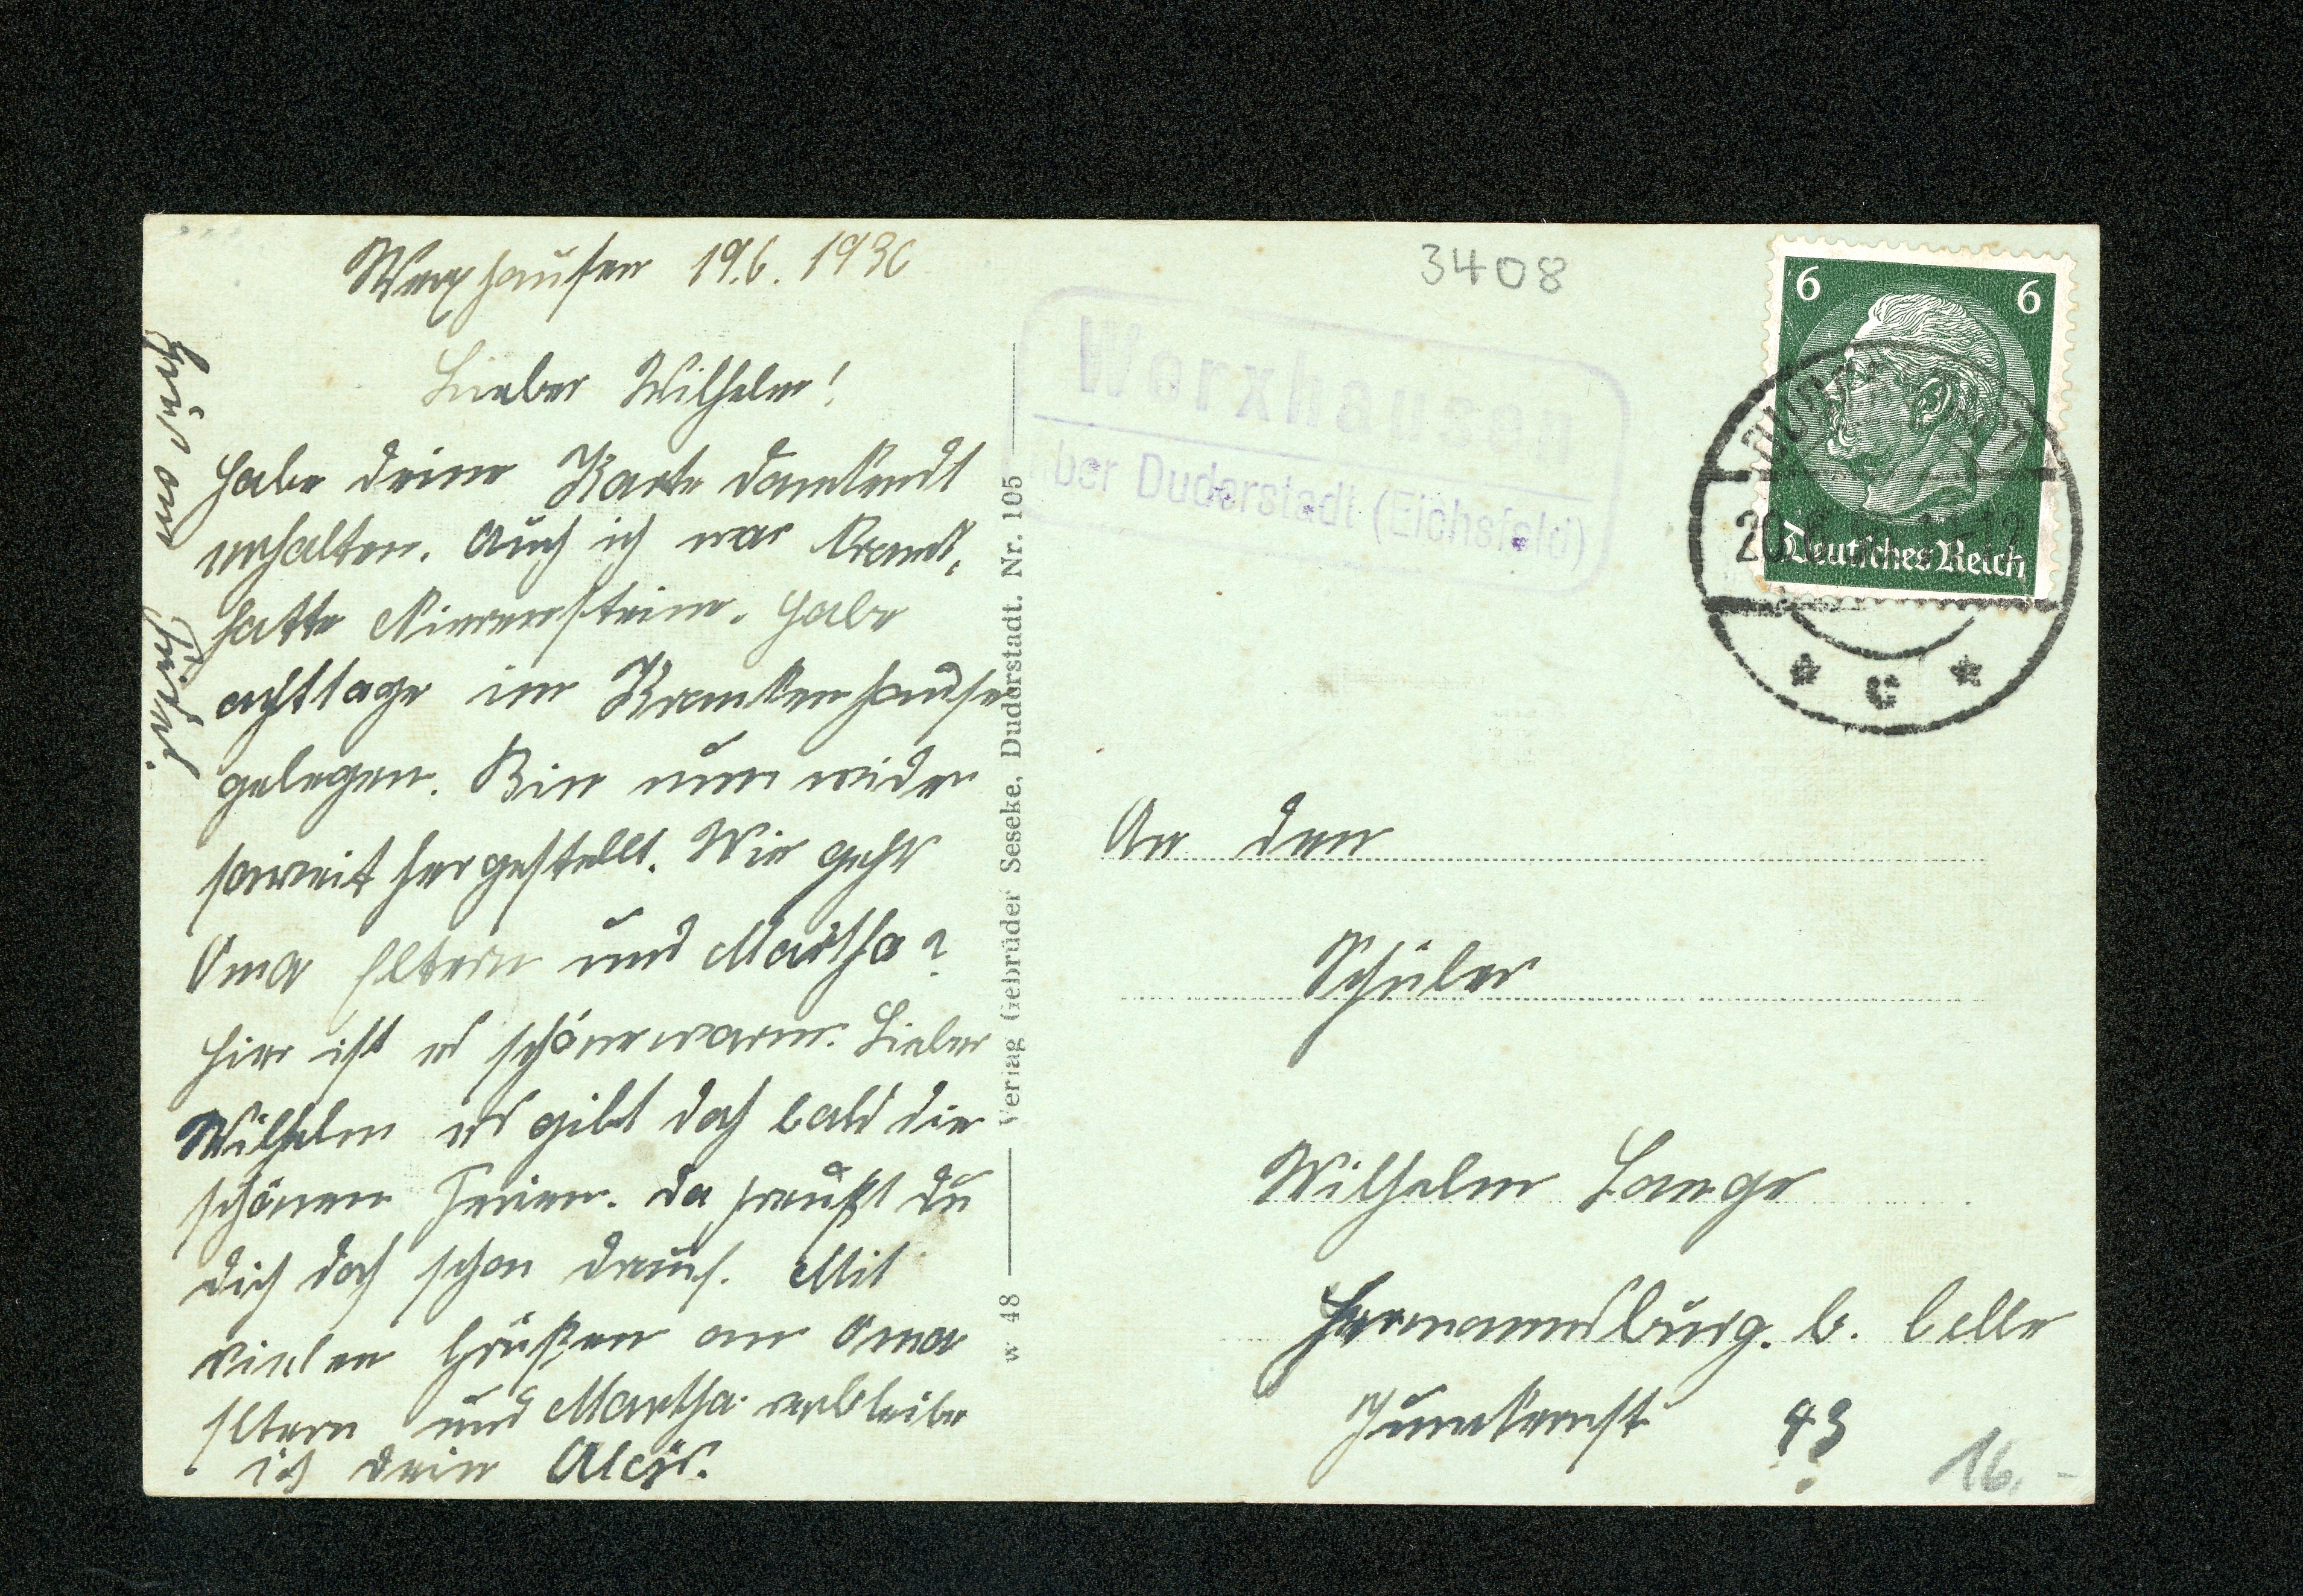 Werxhausen 19.6.1936
Lieber Wilhelm!
Habe deine Karte dankend
erhalten. Auch ich war krank,
hatte Nierensteine. Habe
achttage im Krankenhause
gelegen. Bin nun wider
soweit hergestellt. Wie geht
Oma Eltern und Martha?
Hier ist es schöne warm. Lieber
Wilhelm es gibt doch bald die
schönen Ferien. Da freußt du
dich doch schon drauf. Mit
vielen Grüßen an Oma
Eltern und Martha verbleibe
ich dein Alois.
Gruß von
w 48 Verlag Gebrüder Seseke, Duderstadt. Nr. 105
3408
Werxhausen
über Duderstadt (Eichsfeld)
6 6
Deutsches Reich
c
An den
Schüler
Wilhelm Lange
Hermannsburg. b. Celle
Junkernst 43
16.-